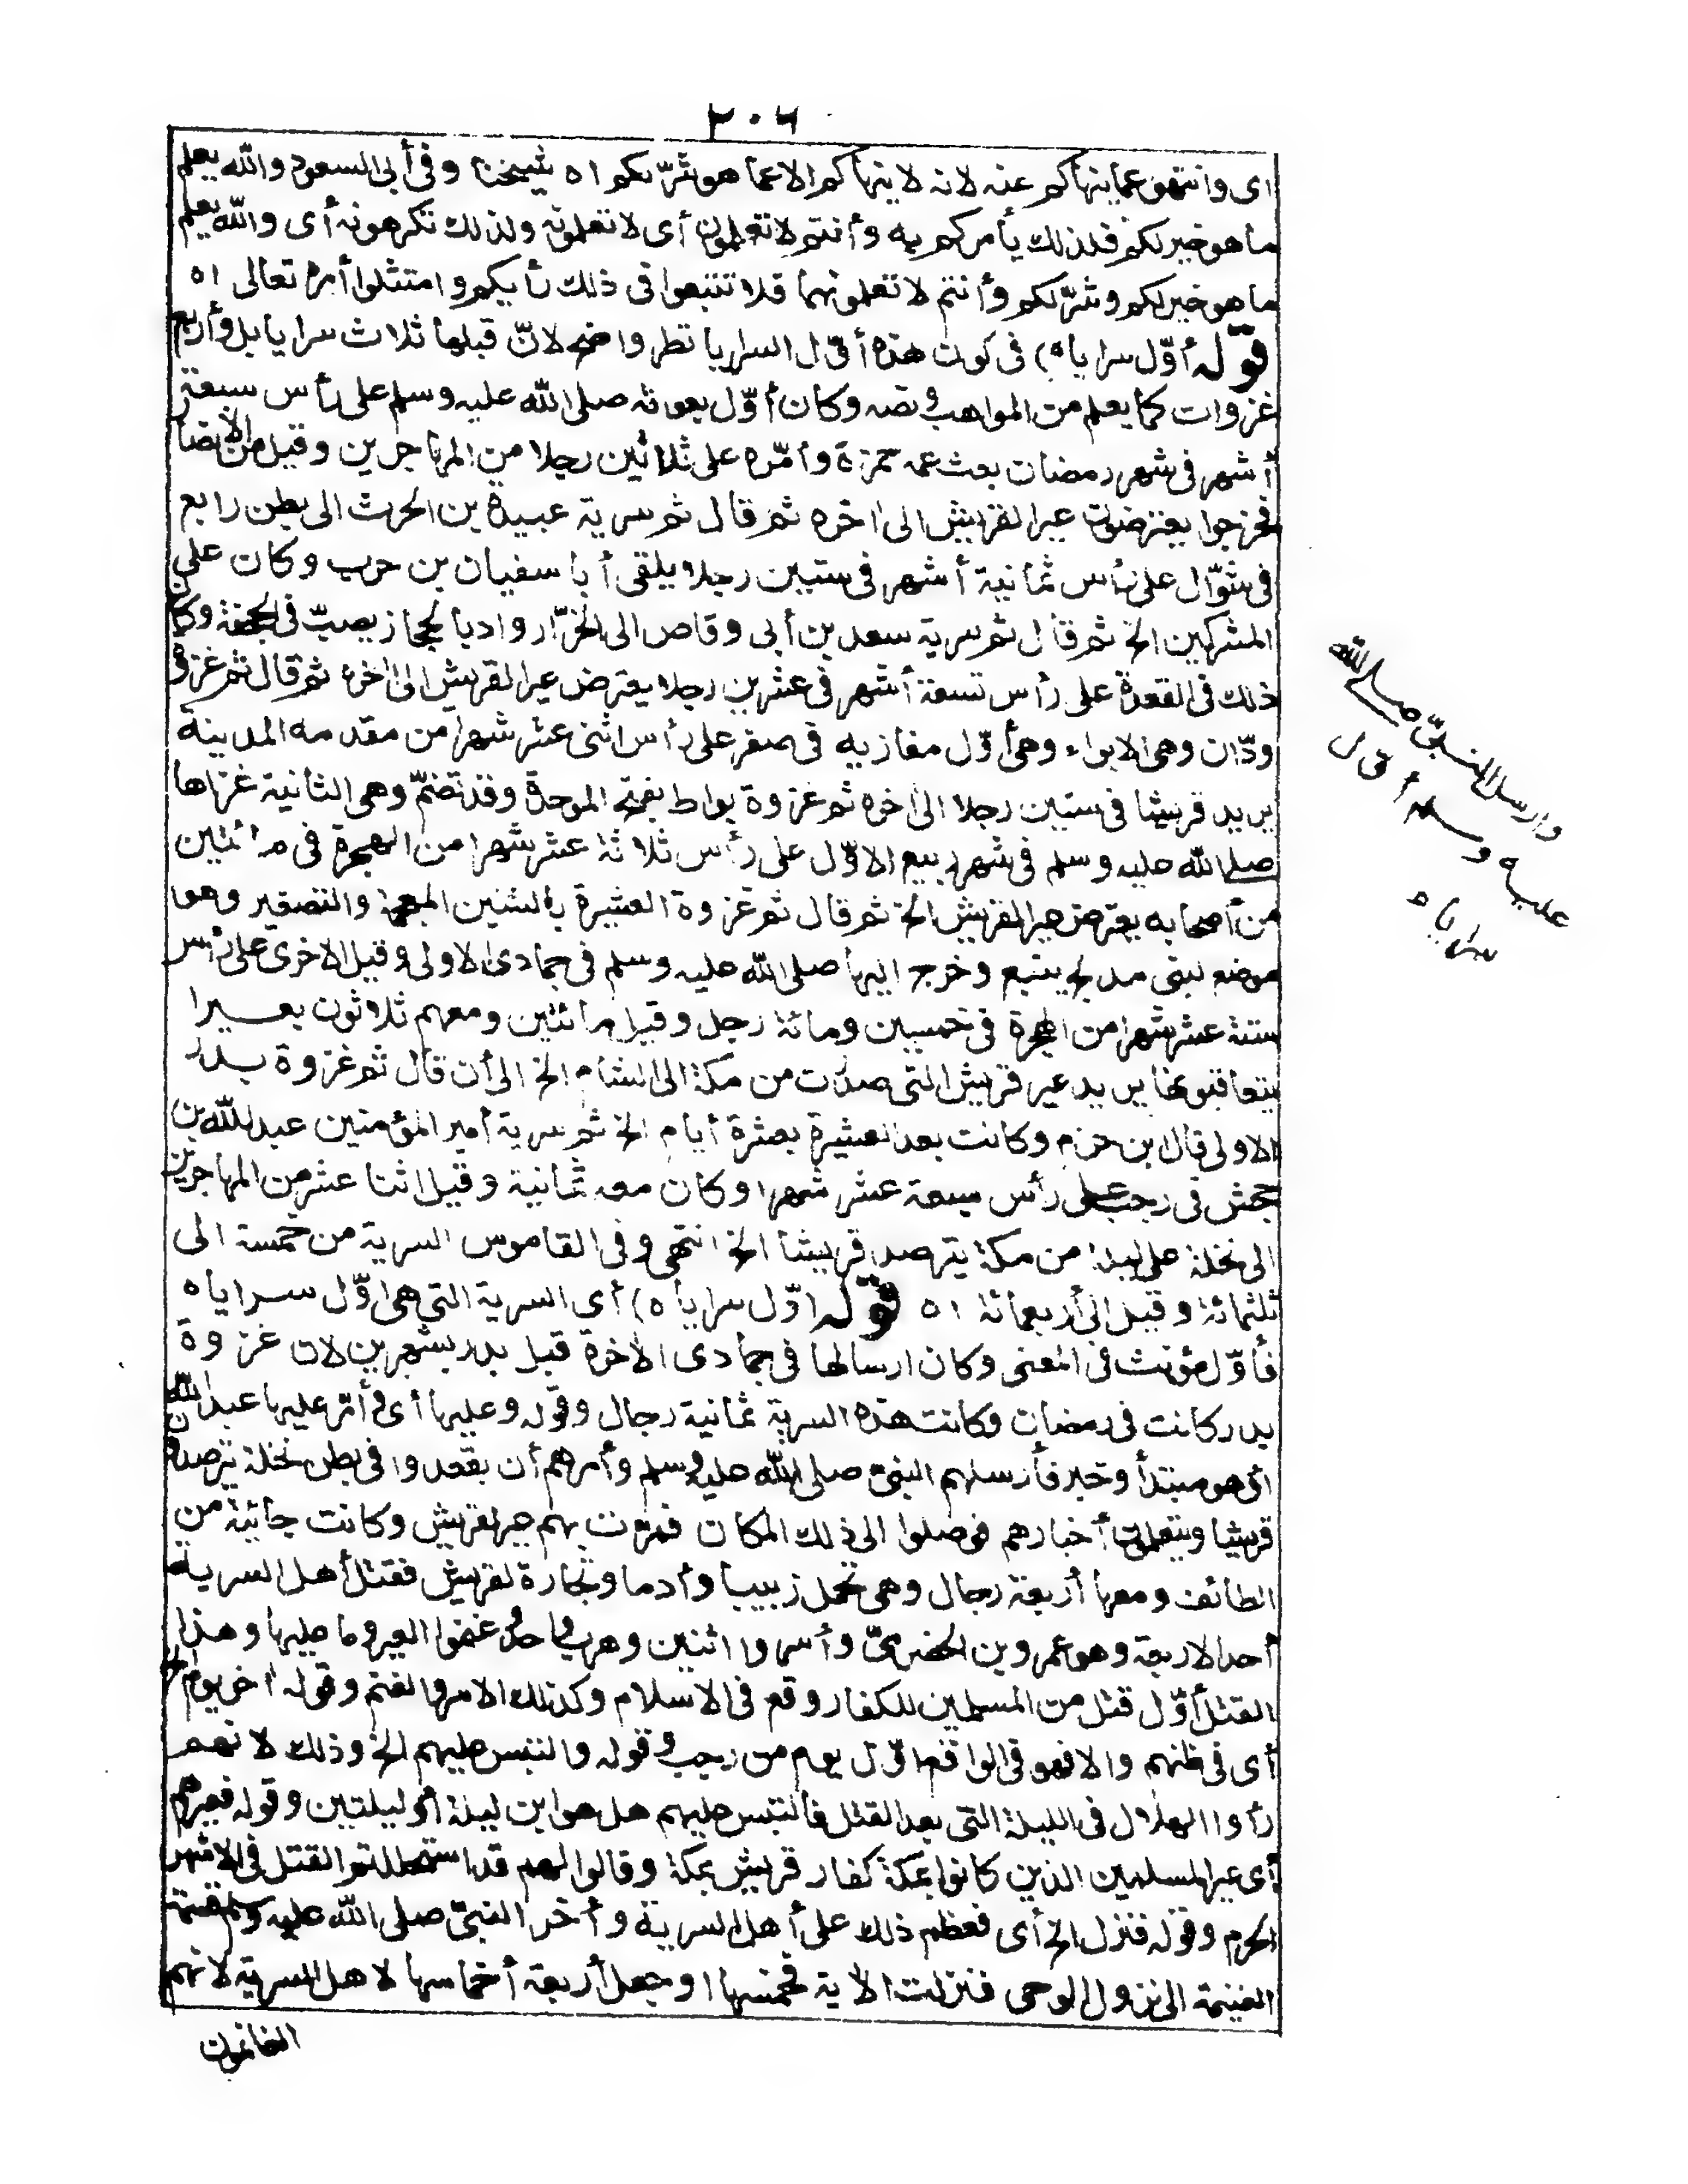 ٢٠٦
اى وانتهوا عما ينهاكم عنه لانه لا ينهاكم الا عما هو شرّ لكم اه شيخنا وفى أبى السعود والله يعلم
ما هو خير لكم فلذلك يأمركم به وأنتم لا تعلمون أى لا تعلمونه ولذلك تكرهونه أى والله يعلم
ما هو خير لكم وشرّ لكم وأنتم لا تعلمونهما فلا تتبعوا فى ذلك رأيكم وامتثلوا أمره تعالى اه
قوله أوّل سراياه) فى كون هذه أوّل السرايا نظر واضح لانّ قبلها ثلاث سرايا بل وأربع
غزوات كما يعلم من المواهب ونصه وكان أوّل بعوثه صلى الله عليه وسلم على رأس سبعة
أشهر فى شهر رمضان بعث عمه حمزة وأمّره على ثلاثين رجلا من المهاجرين وقيل من الانصار
فخرجوا يعترضون عيرا لقريش الى اخره ثم قال ثم سرية عبيدة بن الحرث الى بطن رابع
فى شوّال على رأس ثمانية أشهر فى ستين رجلا يلقى أبا سفيان بن حرب وكان على
المشركين الخ ثم قال ثم سرية سعد بن أبى وقاص الى الخرّار واد بالحجاز يصبّ فى الجحفة وكان
ذلك فى القعدة على رأس تسعة أشهر فى عشرين رجلا يعترض عيرا لقريش الى اخره ثم قال ثم غزوة
ودّان وهى الابواء وهى أوّل مغازيه فى صفر على رأس اثنى عشر شهرا من مقدمه المدينة
يريد قريشا فى ستين رجلا الى اخره ثم غزوة بواط بفتح الموحدة وقد تضمّ وهى الثانية غزاها
صلى الله عليه وسلم فى شهر ربيع الاوّل على رأس ثلاثة عشر شهرا من الهجرة فى مائتين
من أصحابه يعترض عيرا لقريش الخ ثم قال ثم غزوة العشيرة بالشين المعجمة والتصغير وهو
موضع لبنى مدلج بينبع وخرج اليها صلى الله عليه وسلم فى جمادى الاولى وقيل الاخرى على رأس
ستة عشر شهرا من الهجرة فى خمسين ومائة رجل وقيل مائتين ومعهم ثلاثون بعيرا
يتعاقبونها يريد عير قريش التى صدرت من مكة الى الشام الخ الى أن قال ثم غزوة بدر
الاولى قال بن حزم وكانت بعد العشيرة بعشرة أيام الخ ثم سرية أمير المؤمنين عبد الله بن
جحش فى رجب على رأس سبعة عشر شهرا وكان معه ثمانية وقيل اثنا عشر من المهاجرين
الى نخلة على ليلة من مكة يترصد قريشا الخ انتهى وفى القاموس السرية من خمسة الى
ثلثمائة وقيل الى أربعمائة اه قوله اوّل سراياه) أى السرية التى هى اوّل سراياه
فأوّل مؤنث فى المعنى وكان ارسالها فى جمادى الاخرة قبل بدر بشهرين لان غزوة
بدر كانت فى رمضان وكانت هذه السرية ثمانية رجال وقوله وعليها أى وأمّر عليها عبد الله
أى هو مبتدأ وخبر فأرسلهم النبىّ صلى الله عليه وسلم وأمرهم أن يقعدوا فى بطن نخلة يترصدون
قريشا ويتعلمون أخبارهم فوصلوا الى ذلك المكان فمرّت بهم عير لقريش وكانت جائية من
الطائف ومعها أربعة رجال وهى تحمل زبيبا وأدما وتجارة لقريش فقتل أهل السرية
أحد الاربعة وهو عمرو بن الحضرمىّ وأسروا اثنين وهرب واحد وغنموا العير وما عليها وهذا
القتل أوّل قتل من المسلمين للكفار وقع فى الاسلام وكذلك الاسر والغنم وقوله اخر يوم الخ
أى فى ظنهم والا فهو فى الواقع اوّل يوم من رجب وقوله والتبس عليهم الخ وذلك لانهم
رأوا الهلال فى الليلة التى بعد القتل فالتبس عليهم هل هو ابن ليلة أو ليلتين وقوله فعيرهم
أى عير المسلمين الذين كانوا بمكة كفار قريش بمكة وقالوا لهم قد استحللتم القتل فى الاشهر
الحرم وقوله فنزل الخ أى فعظم ذلك على أهل السرية وأخر النبىّ صلى الله عليه وسلم قسمة
الغنيمة الى نزول الوحى فنزلت الاية فخمسها وجعل أربعة أخماسها لاهل السرية لانهم
الغانمون
وارسل النبىّ صلى الله
عليه وسلم أوّل
سراياه